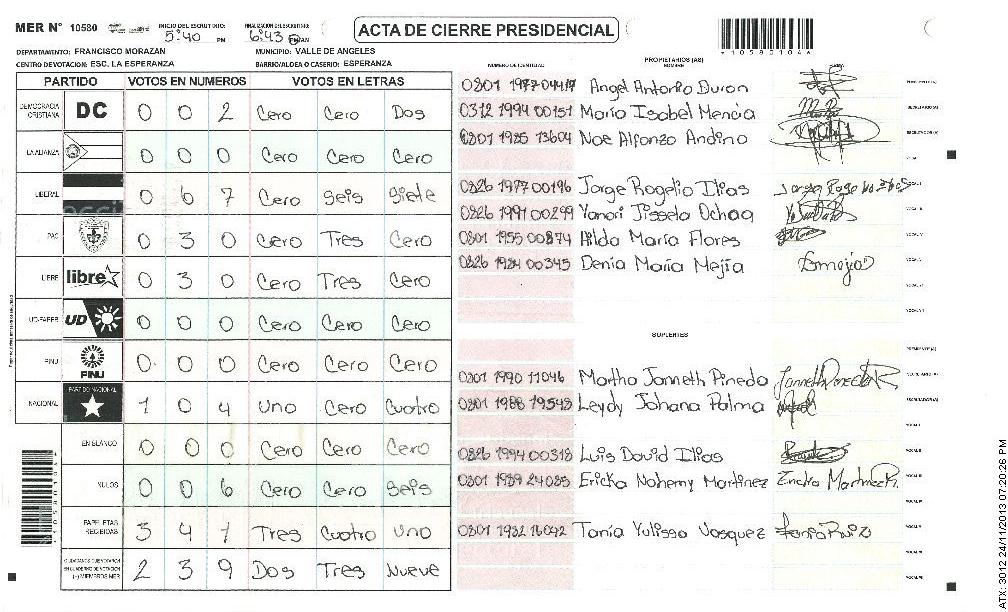 MER N° 10580 INICIO DEL ESCRUTINIO: 5:40 PM FINALIZACION DEL ESCRUTINIO: 6:43 PM
ACTA DE CIERRE PRESIDENCIAL
DEPARTAMENTO: FRANCISCO MORAZAN MUNICIPIO: VALLE DE ANGELES
CENTRO DE VOTACION: ESC. LA ESPERANZA BARRIO/ALDEA O CASERIO: ESPERANZA
PARTIDO VOTOS EN NUMEROS VOTOS EN LETRAS
DEMOCRACIA CRISTIANA DC 0 0 2 Cero Cero Dos
LA ALIANZA 0 0 0 Cero Cero Cero
LIBERAL 0 6 7 Cero Seis Siete
PAC 0 3 0 Cero Tres Cero
LIBRE libre 0 3 0 Cero Tres Cero
UD-FAPER UD 0 0 0 Cero Cero Cero
PINU PINU 0 0 0 Cero Cero Cero
NACIONAL PARTIDO NACIONAL 1 0 4 Uno Cero Cuatro
EN BLANCO 0 0 0 Cero Cero Cero
NULOS 0 0 6 Cero Cero Seis
PAPELETAS RECIBIDAS 3 4 1 Tres Cuatro Uno
CIUDADANOS QUE VOTARON EN CUADERNO DE VOTACION (+) MIEMBROS MER 2 3 9 Dos Tres Nueve
NUMERO DE IDENTIDAD PROPIETARIOS (AS) NOMBRE FIRMA
0801 1977 04417 Angel Antonio Duron PRESIDENTE(A)
0312 1994 00151 Maria Isabel Mencia SECRETARIO(A)
0801 1985 13604 Noe Alfonzo Andino ESCRUTADOR(A)
0826 1977 00196 Jorge Rogelio Ilias VOCAL I
0826 1991 00299 Yanori Jissela Ochoa VOCAL II
0801 1955 00874 Hilda Maria Flores
0826 1984 00345 Denia Maria Mejia
SUPLENTES
PRESIDENTE(A)
0801 1990 11046 Martha Janneth Pinedo SECRETARIO(A)
0801 1988 19548 Leydy Johana Palma ESCRUTADOR(A)
0826 1994 00318 Luis David Ilias
0801 1989 24085 Ericka Nohemy Martinez
0801 1982 16042 Tania Yulissa Vasquez
ATX: 3012 24/11/2013 07:20:26 PM